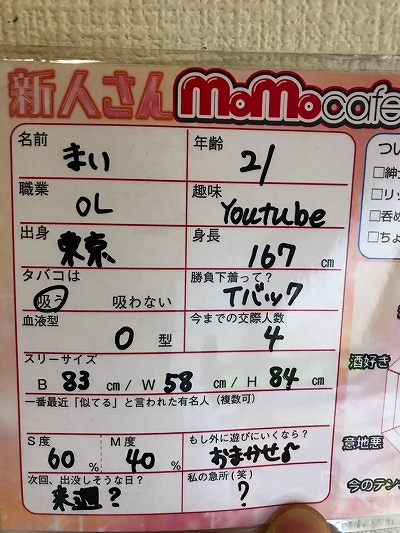 新人さん MoMocafe
名前 まい 年齢 21
職業 OL 趣味 Youtube
出身 東京 身長 167 cm
タバコは 吸う 吸わない 勝負下着って? Tバック
血液型 O 型 今までの交際人数 4
スリーサイズ
B 83 cm / W 58 cm / H 84 cm
一番最近「似てる」と言われた有名人(複数可)
S度 60% M度 40% もし外に遊びにいくなら? おまかせ♪
次回、出没しそうな日? 来週? 私の急所(笑) ?
つい
□紳士
□リッ
□呑め
□ちょ
酒好き
意地悪
今のテン